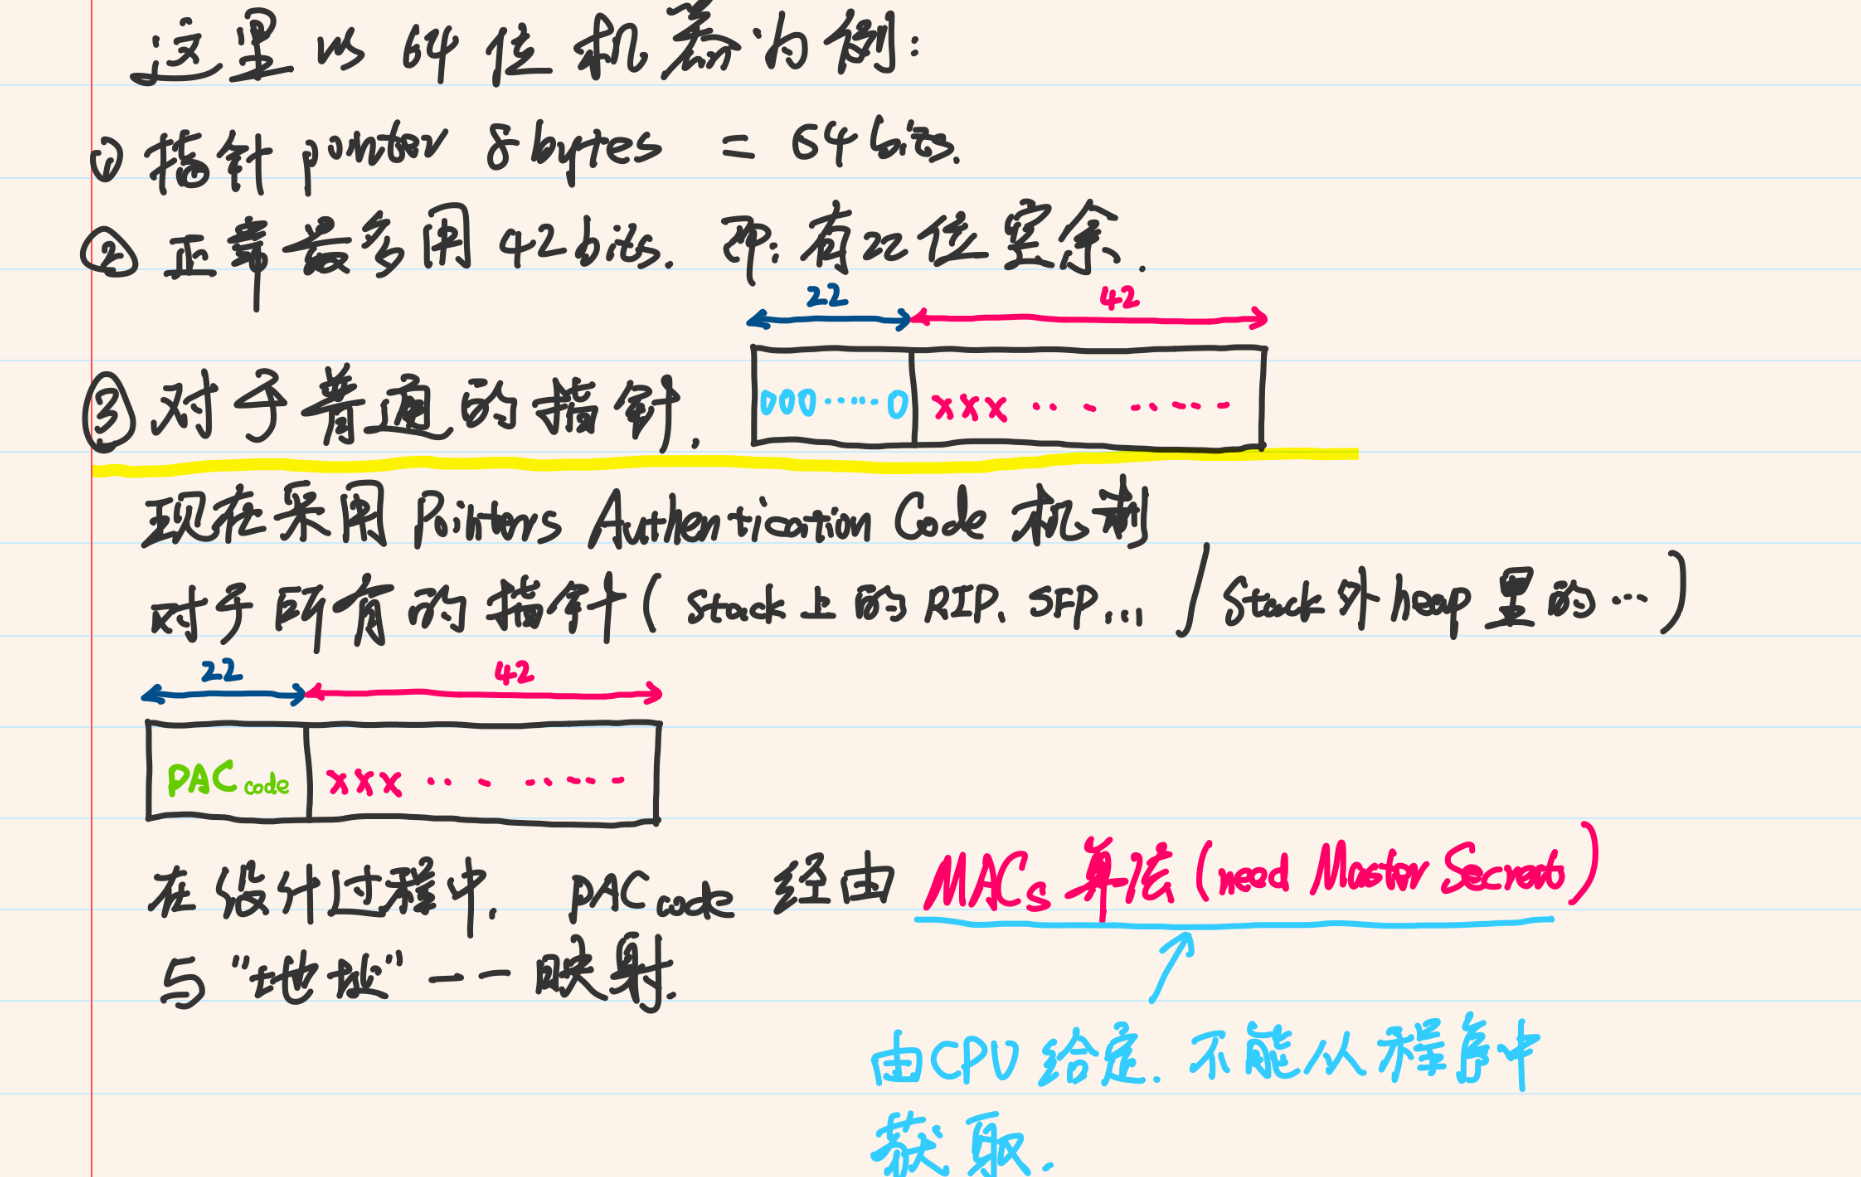 这里以64位机器为例:
① 指针 pointer 8 bytes = 64 bits.
② 正常最多用 42 bits. 即: 有22位空余.
22 42
③ 对于普通的指针. 000……0 xxx ·· · ······
现在采用 Pointers Authentication Code 机制
对于所有的指针 ( Stack 上的 RIP. SFP... / Stack 外 heap 里的 … )
22 42
PAC code xxx ·· · ······
在设计过程中. PAC code 经由 MACs 算法 (need Master Secret)
与 "地址" 一一映射.
由CPU 给定. 不能从程序中
获取.